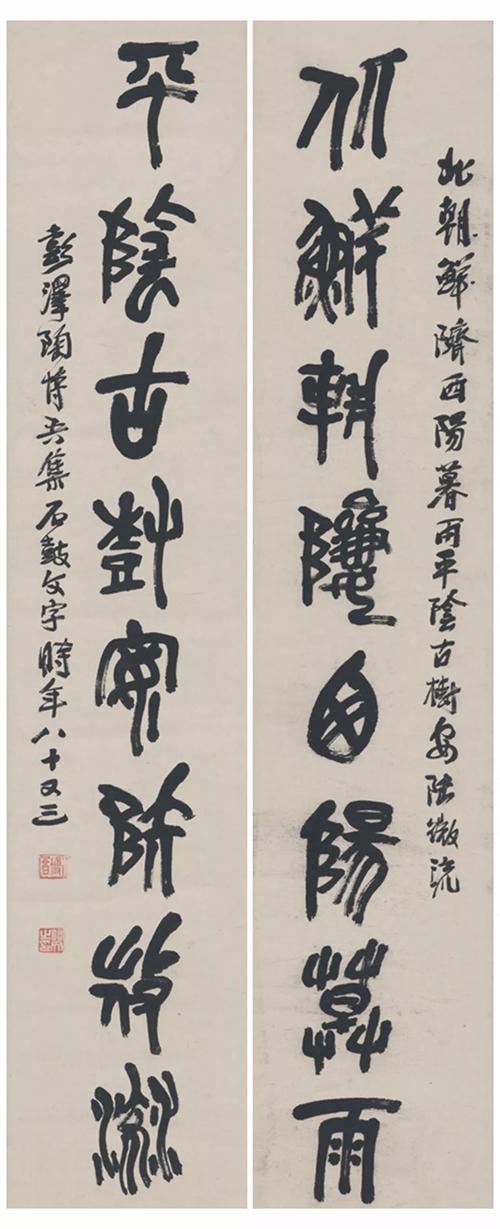 北朝鮮隮西陽暮雨平陰古樹安陸微流
北鮮朝隮西陽莫雨
平陰古樹安陸微流
彭澤陶博吾集石鼓文字時年八十又三